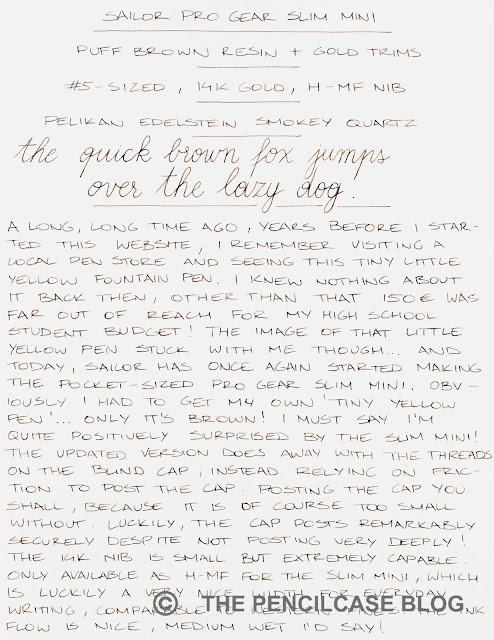 SAILOR PRO GEAR SLIM MINI
PUFF BROWN RESIN + GOLD TRIMS
#5-SIZED, 14K GOLD, H-MF NIB
PELIKAN EDELSTEIN SMOKEY QUARTZ
the quick brown fox jumps
over the lazy dog.
A LONG, LONG TIME AGO, YEARS BEFORE I STAR-
TED THIS WEBSITE, I REMEMBER VISITING A
LOCAL PEN STORE AND SEEING THIS TINY LITTLE
YELLOW FOUNTAIN PEN. I KNEW NOTHING ABOUT
IT BACK THEN, OTHER THAN THAT 150€ WAS
FAR OUT OF REACH FOR MY HIGH SCHOOL
STUDENT BUDGET! THE IMAGE OF THAT LITTLE
YELLOW PEN STUCK WITH ME THOUGH... AND
TODAY, SAILOR HAS ONCE AGAIN STARTED MAKING
THE POCKET-SIZED PRO GEAR SLIM MINI. OBV-
IOUSLY I HAD TO GET MY OWN 'TINY YELLOW
PEN'... ONLY IT'S BROWN! I MUST SAY I'M
QUITE POSITIVELY SURPRISED BY THE SLIM MINI!
THE UPDATED VERSION DOES AWAY WITH THE THREADS
ON THE BLIND CAP, INSTEAD RELYING ON FRIC-
TION TO POST THE CAP. POSTING THE CAP YOU
SMALL, BECAUSE IT IS OF COURSE TOO SMALL
WITHOUT. LUCKILY, THE CAP POSTS REMARKABLY
SECURELY DESPITE NOT POSTING VERY DEEPLY!
THE 14K NIB IS SMALL BUT EXTREMELY CAPABLE.
ONLY AVAILABLE AS H-MF FOR THE SLIM MINI, WHICH
IS LUCKILY A VERY NICE WIDTH FOR EVERYDAY
WRITING, INK
© THE PENCILCASE BLOG
FLOW IS NICE, MEDIUM WET I'D SAY!